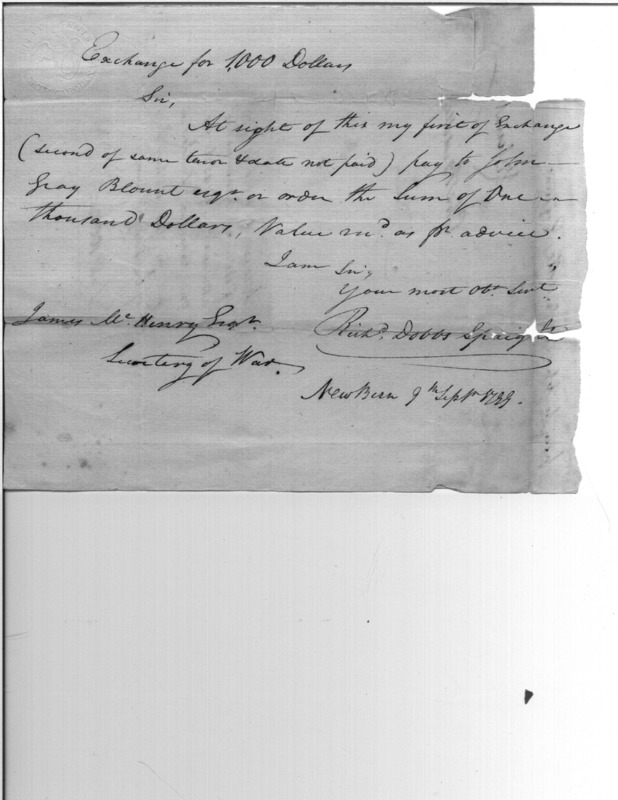 Exchange for 1,000 Dollars
Sir,
At sight of this my first of Exchange
(second of same tenor & date not paid) pay to John
Gray Blount esqr. or order the Sum of One
thousand Dollars, Value recd. as pr. advice.
I am Sir,
Your most Obt. Servt.
James McHenry Esqr.
Richd. Dobbs Spaight
Secretary of War.
New Bern 9th Septr. 1799.